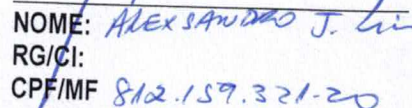 NOME: ALEXSANDRO J.
RG/CI:
CPF/MF 812.159.321-20